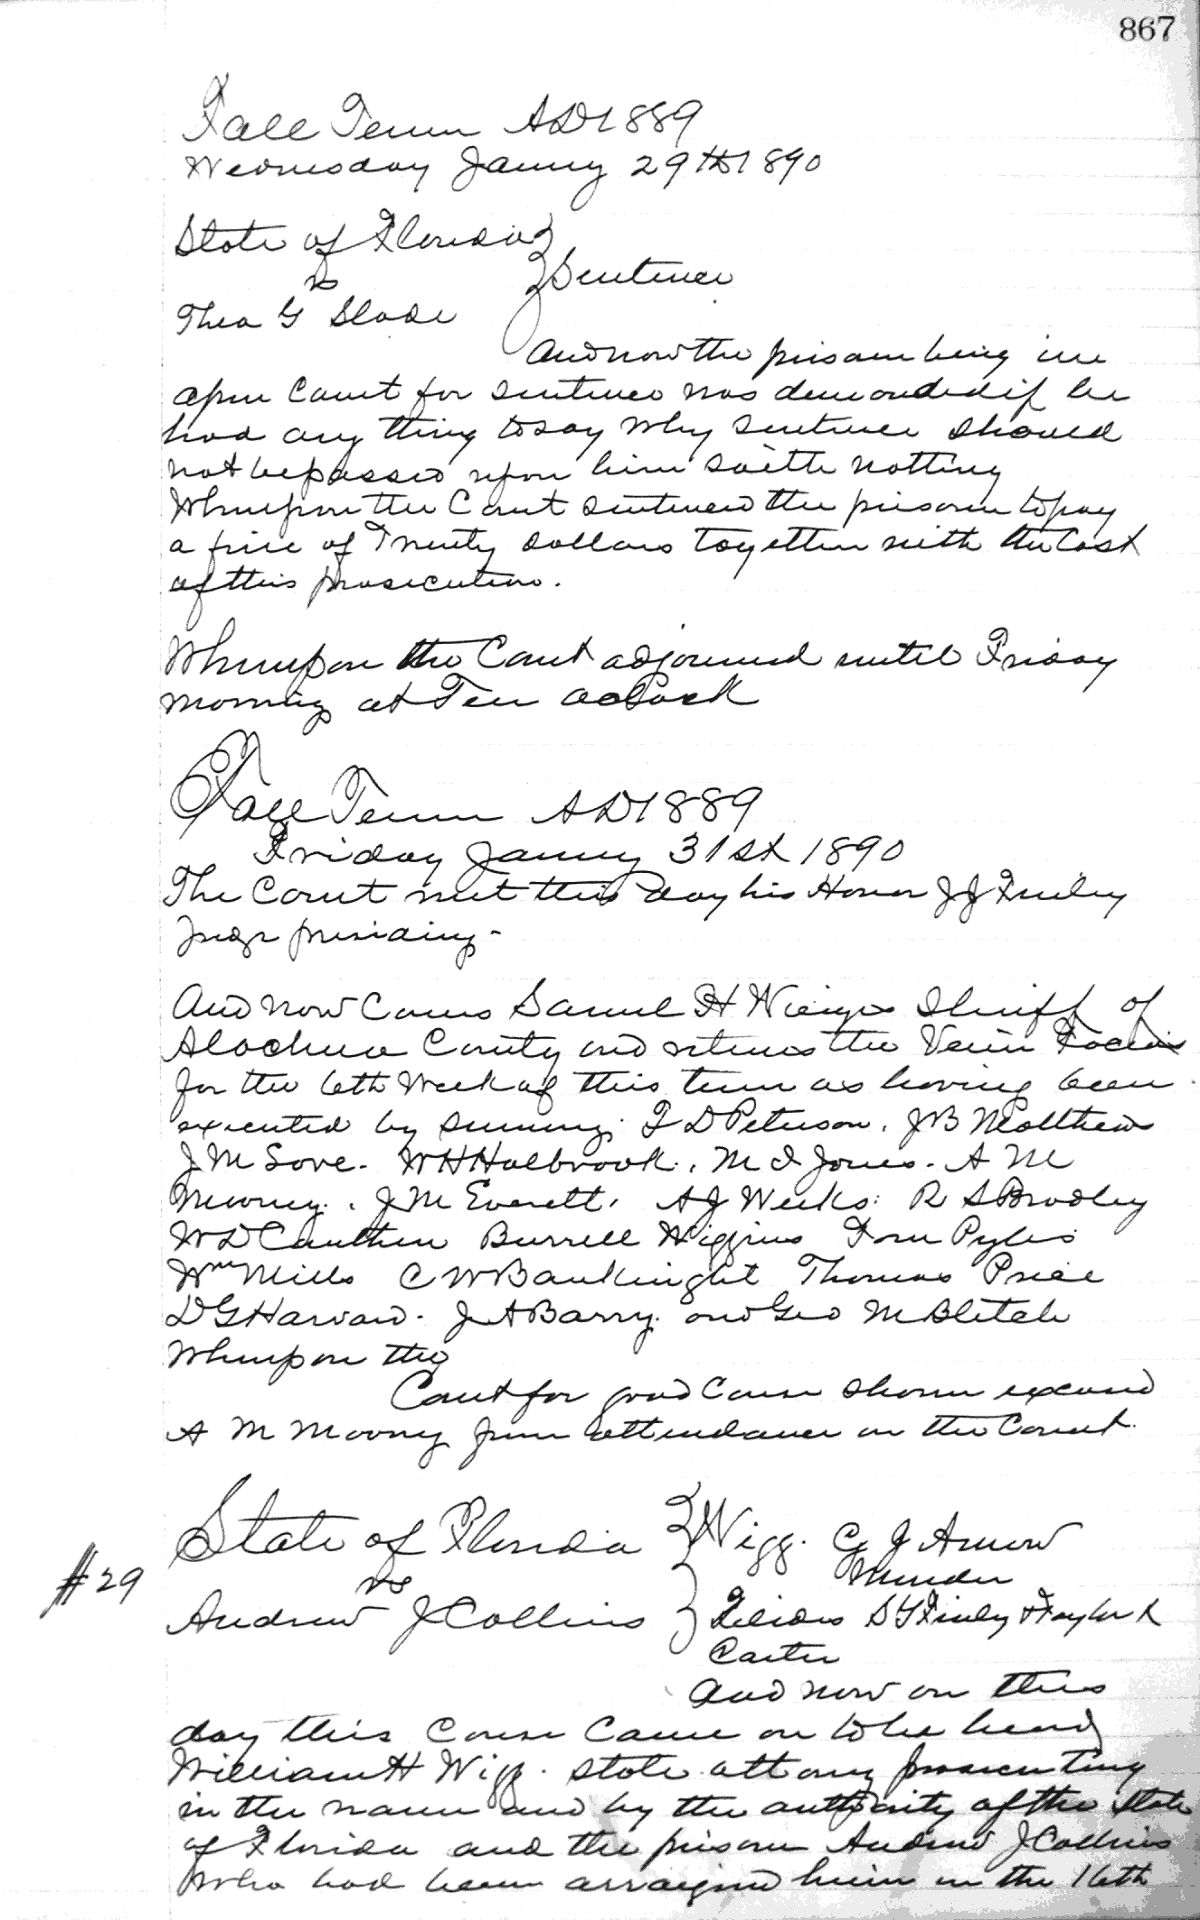 867
Fall Term AD 1889
Wednesday Jany 29th 1890
State of Florida
vs
Sentence
Theo G Slade
And now the prisoner being in
open Court for sentence was demanded if he
had any thing to say why sentence should
not be passed upon him saith nothing
Whereupon the Court sentenced the prisoner to pay
a fine of Twenty dollars together with the Cost
of this prosecution.
Whereupon the Court adjourned until Friday
morning at Ten oclock
Fall Term AD 1889
Friday Jany 31st 1890
The Court met this day his Honor J J Finley
Judge presiding -
And now Comes Samuel H Wienges Sheriff of
Alachua County and returns the Venire Facias
for the 6th Week of this term as having been
executed by suming T D Peterson. J B Matthews
J M Love. W H Holbrook. M I Jones. A M
Mooney. J M Everett. A J Weeks. R S Bradley
W D Cauthen Burrell Higgins Tom Pyles
Wm Mills C W Bauknight Thomas Price
D G Harvard. J A Barry. and Geo M Blitch
Whereupon the
Court for good Cause shown excused
A M Mooney from attendance on the Court.
State of Florida Wigg. C J Arnow
vs Murder
#29
Andrew J Collins S Y Finley & Taylor &
Carter
And now on this
day this Cause Came on to be heard
William H Wigg. state attorney prosecuting
in the name and by the authority of the state
of Florida and the prisoner Andrew J Collins
who had been arraigned herein on the 16th